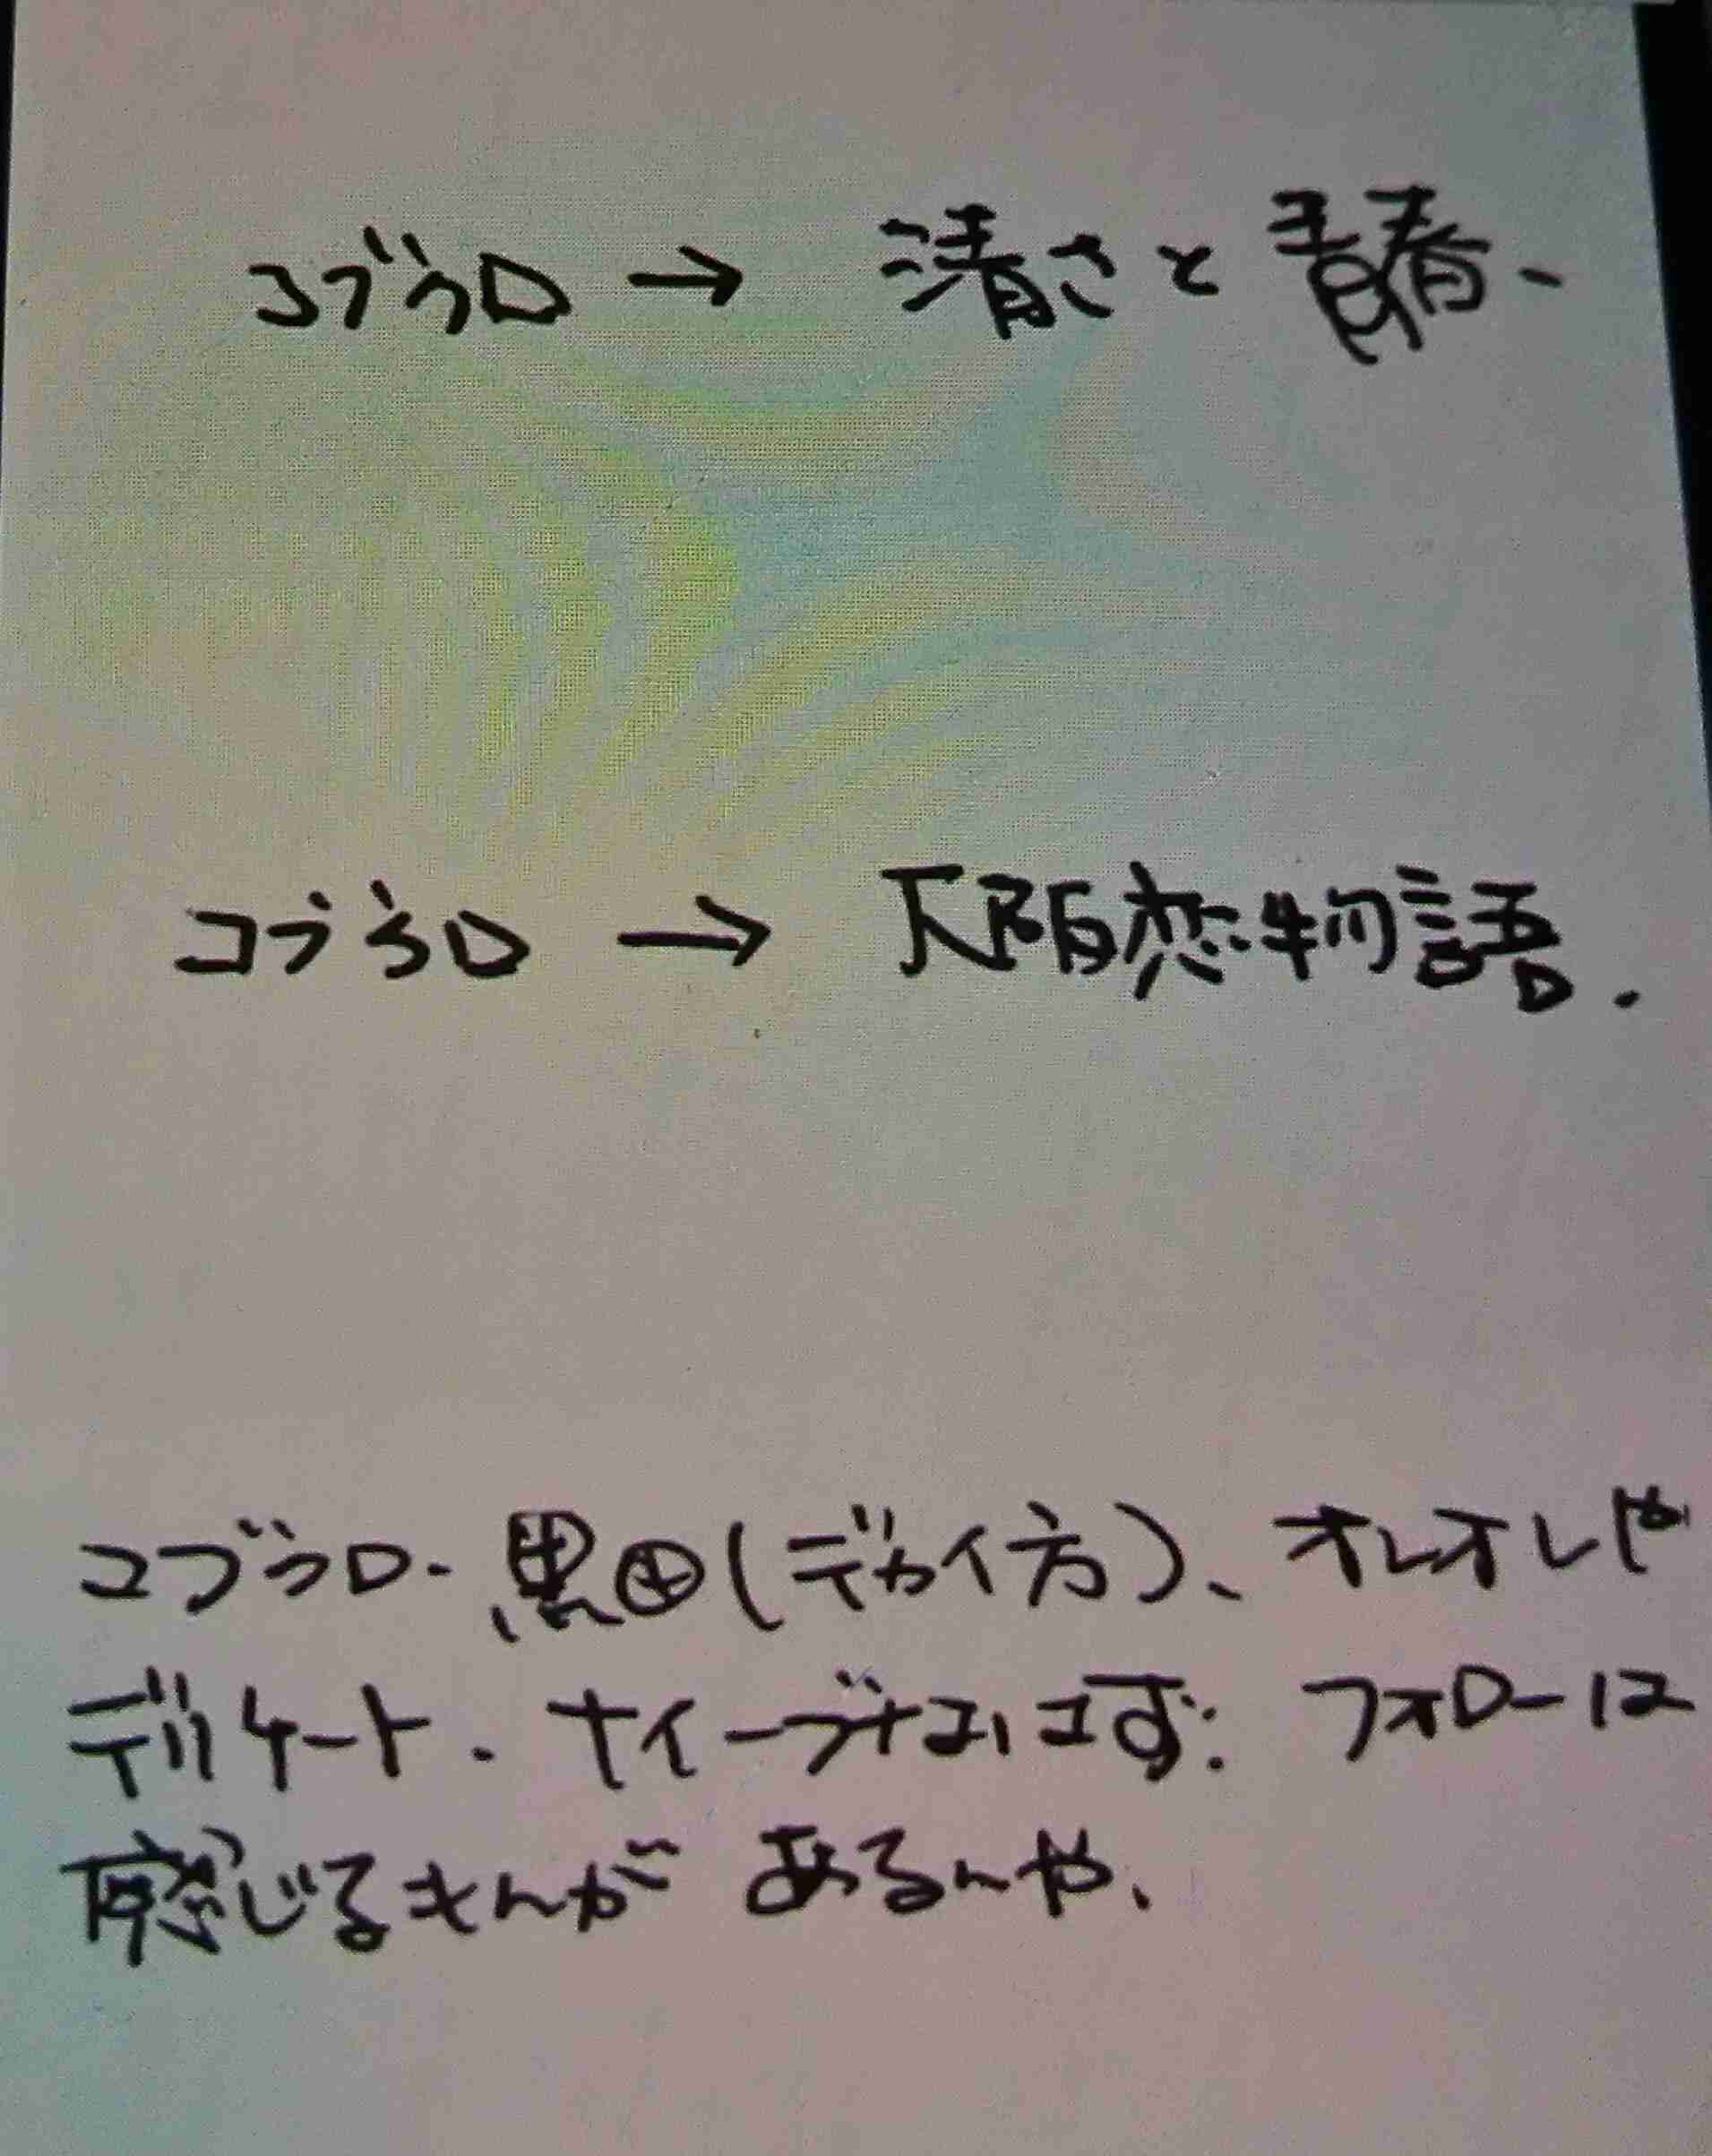 コブクロ → 清さと青春、
コブクロ → 大阪恋物語.
コブクロ. 黒田(デカイ方)、オレオレや
デリケート. ナイーブ フォローに
感じるもんが あるんや、